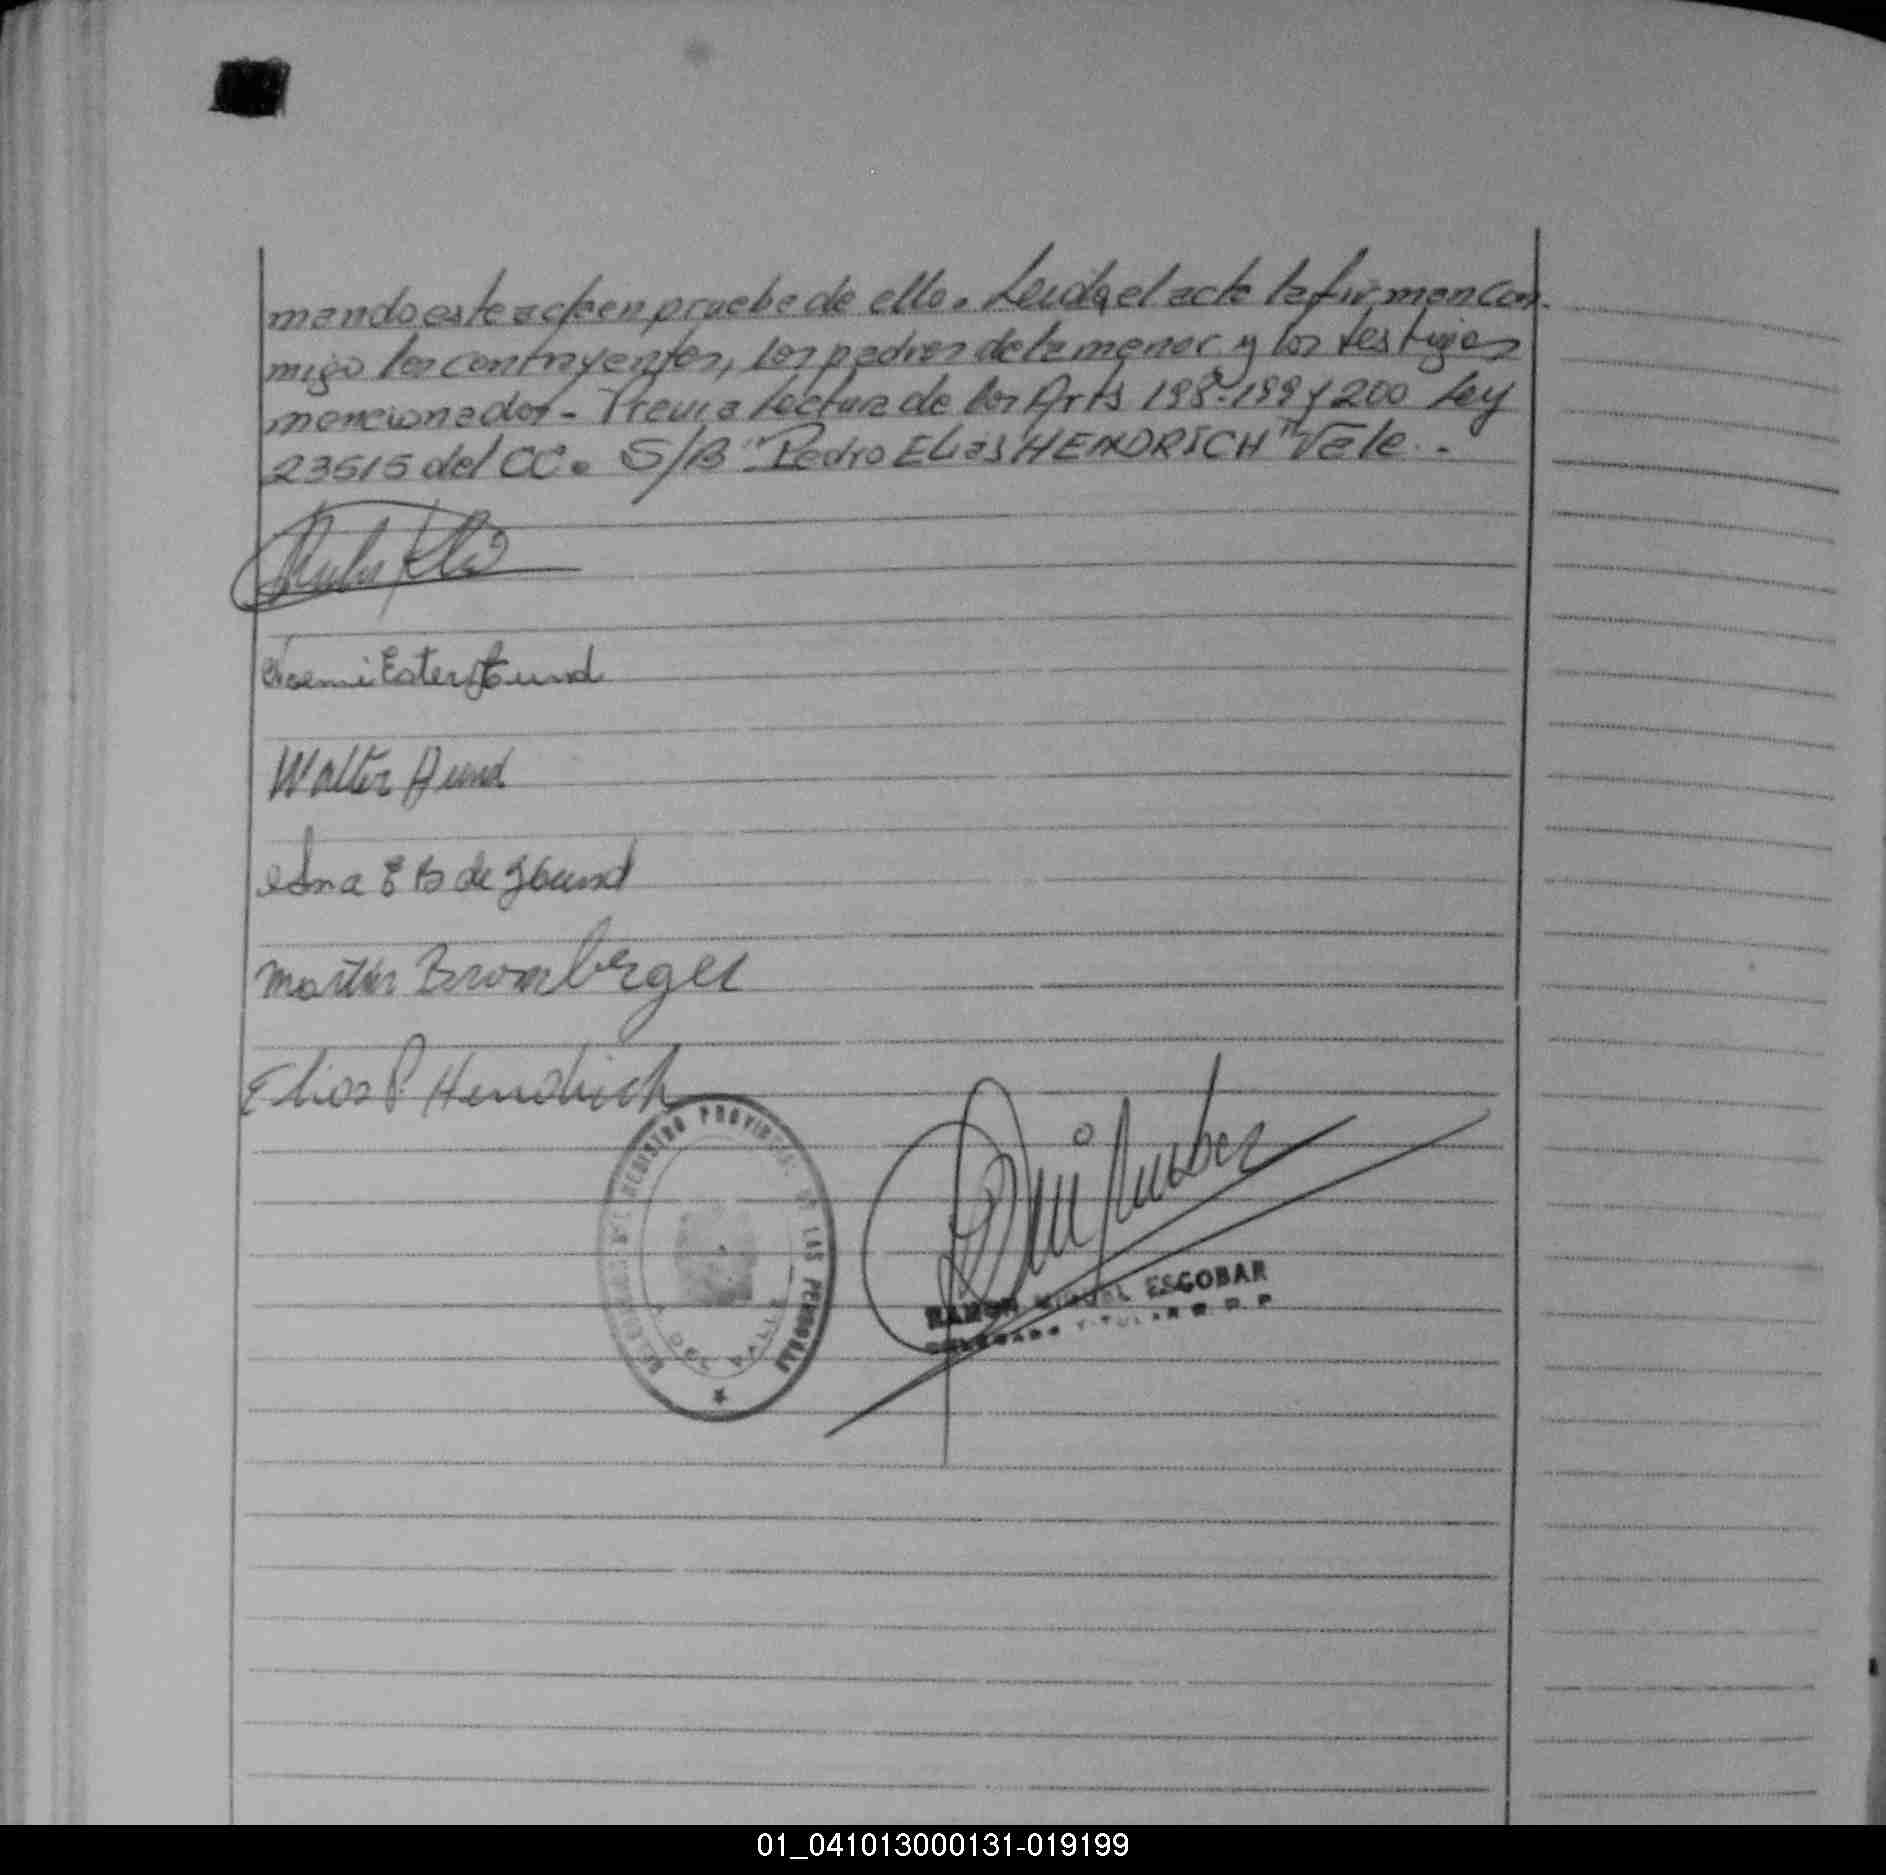 mando este acta en prueba de ello. Leida el acta la firman con-
migo los contrayentes, los padres de la menor y los testigos
mencionados - Previa lectura de los Arts 198-199 y 200 Ley
23515 del CC. S/B "Pedro Elias HENDRICH" Vale.-
Noemi Ester Hund
Walter Hund
Edna E B de Hund
Martin Bromberger
Elias P Hendrich
REGISTRO PROVINCIAL DE LAS PERSONAS
RAMON MIGUEL ESCOBAR
DELEGADO TITULAR R. P. P.
01_041013000131-019199